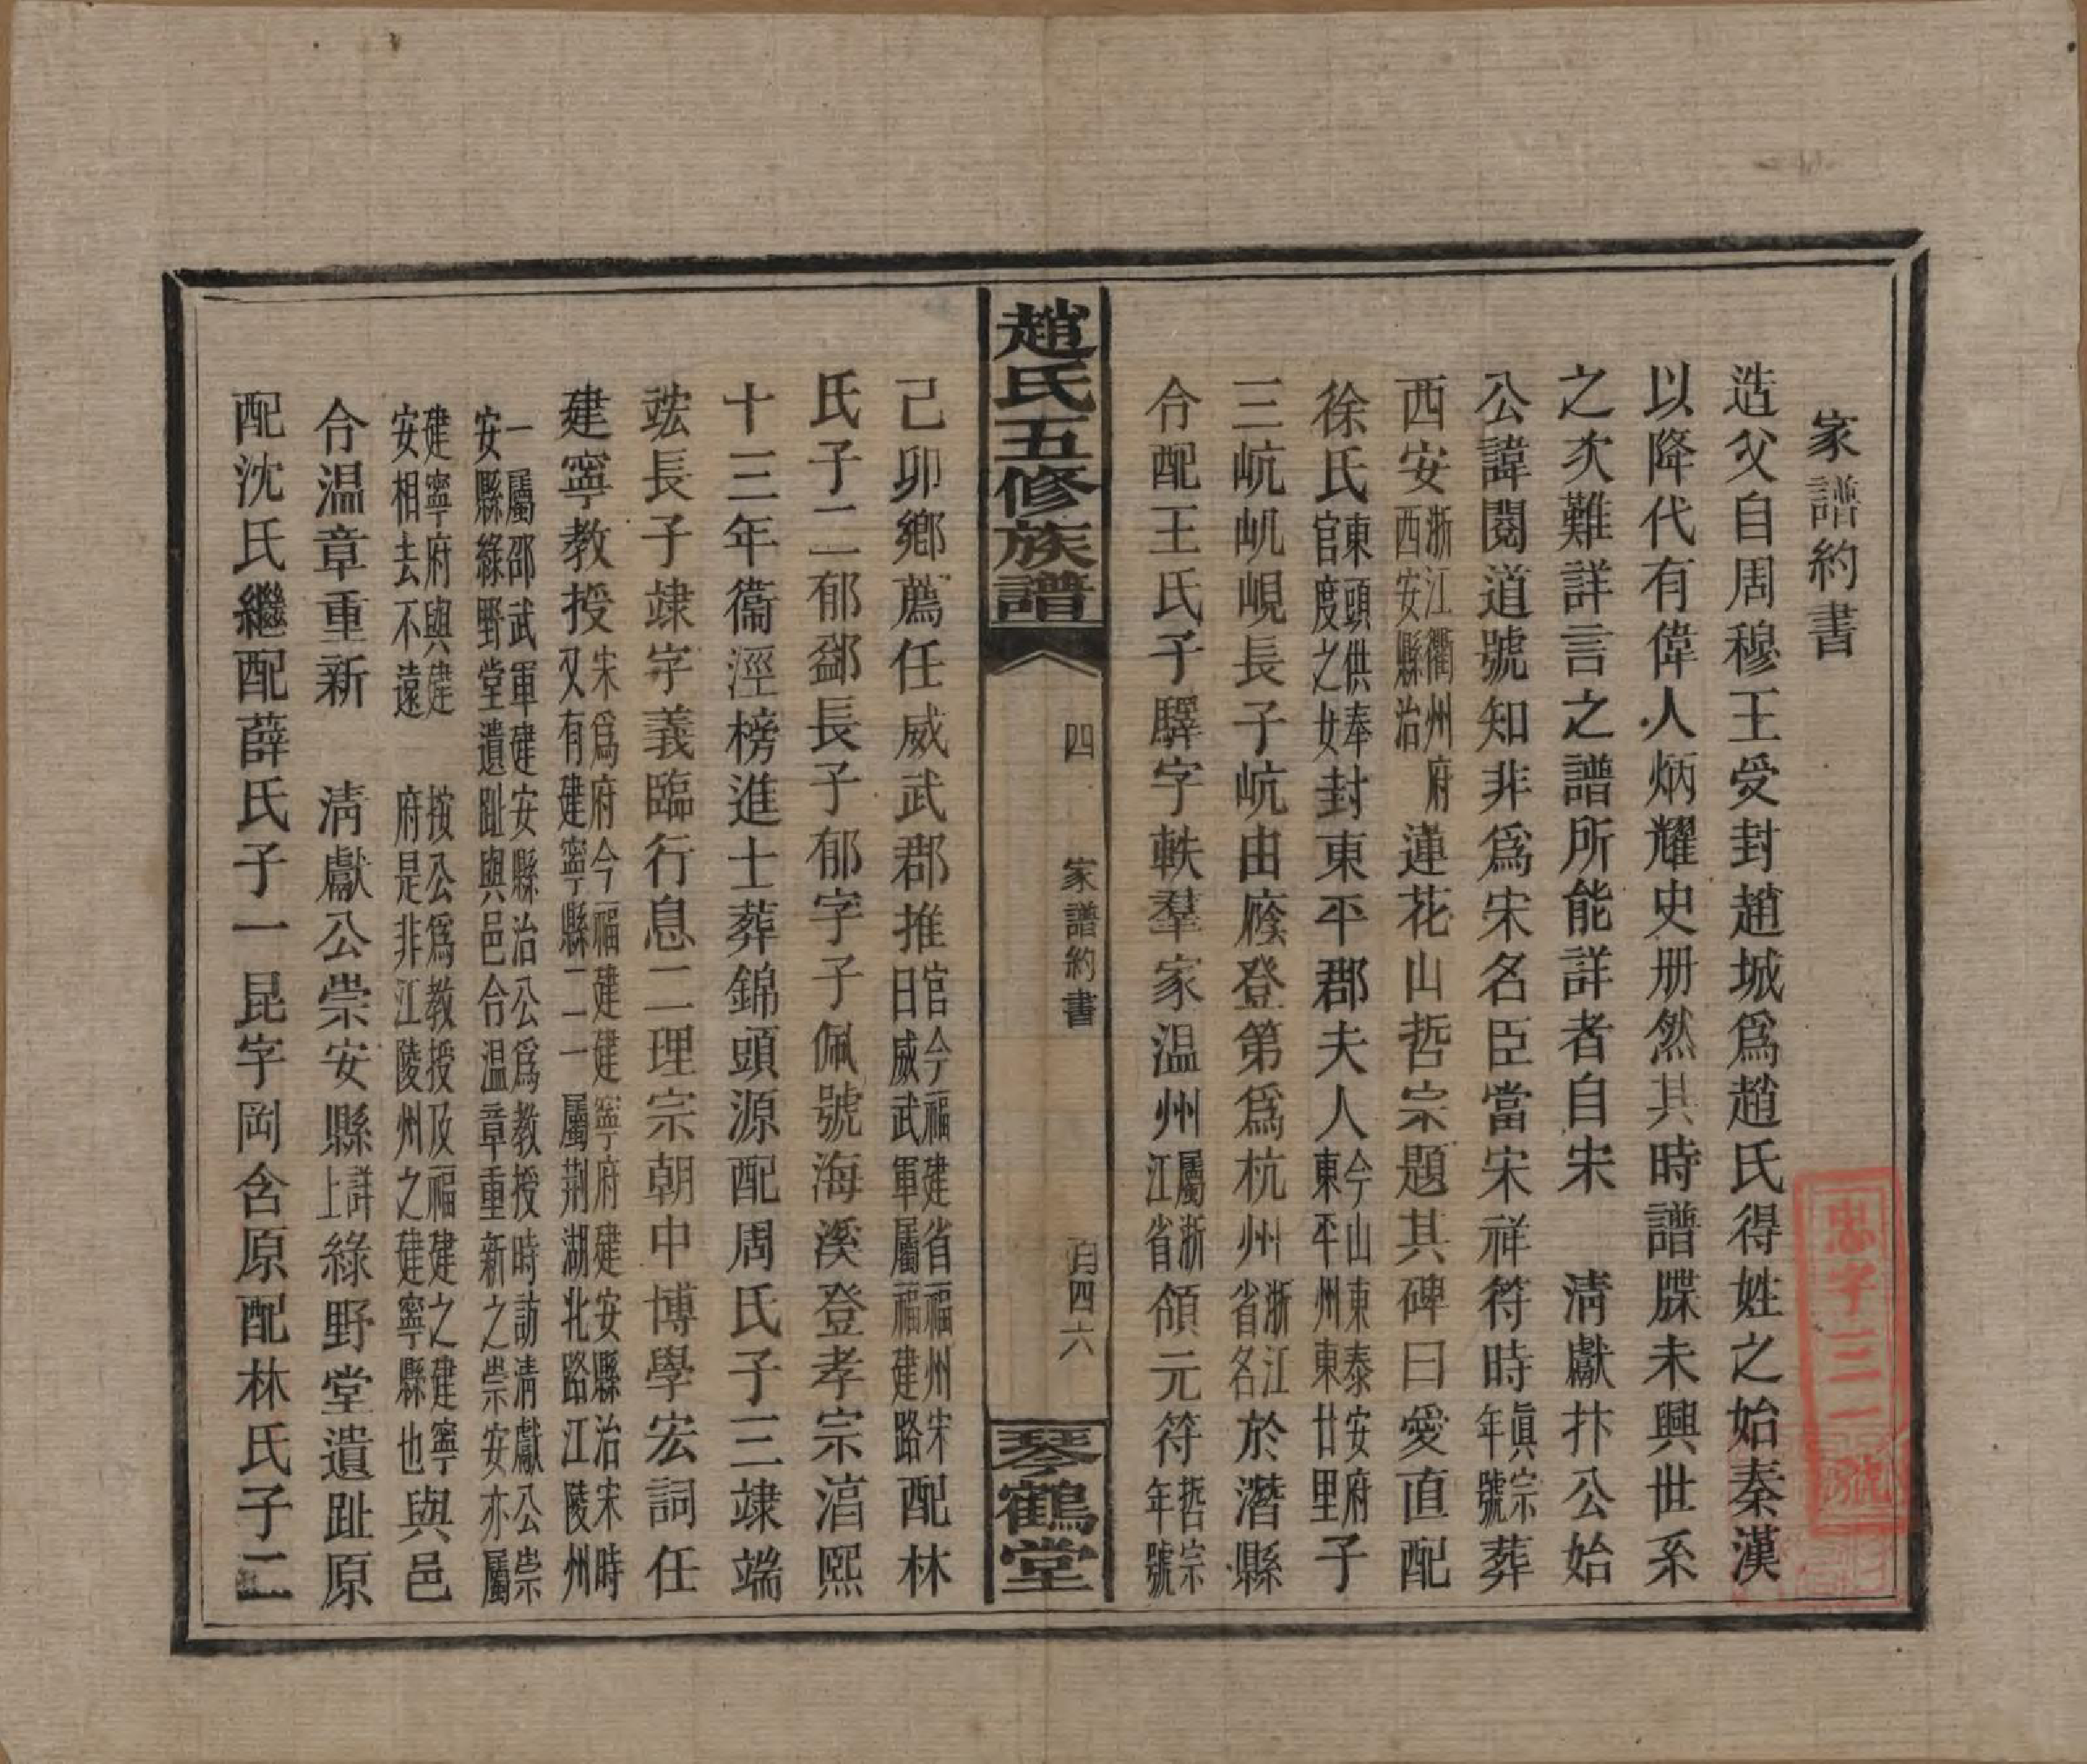 家譜約書
造父自周穆王受封趙城爲趙氏得姓之始秦漢
以降代有偉人炳耀史册然其時譜牒未興世系
之次難詳言之譜所能詳者自宋　清獻抃公始
公諱閱道號知非爲宋名臣當宋祥符時眞宗年號葬
西安浙江衢州府西安縣治蓮花山哲宗題其碑曰愛直配
徐氏東頭供奉官度之女封東平郡夫人今山東泰安府東平州東廿里子
三㞻屼峴長子㞻由廕登第爲杭州浙江省名於潛縣
合配王氏子驛字軼羣家温州屬浙江省領元符哲宗年號
己卯鄉薦任威武郡推官今福建省福州宋曰威武軍屬福建路配林
氏子二郁鄰長子郁字子佩號海溪登孝宗淳熙
十三年衞涇榜進士葬錦頭源配周氏子三竦端
竑長子竦字義臨行息二理宗朝中博學宏詞任
建寧教授宋爲府今福建建寧府建安縣治宋時又有建寧縣二一屬荆湖北路江陵州
一屬邵武軍建安縣治公爲教授時訪清獻公崇安縣綠野堂遺趾與邑合温章重新之崇安亦屬
建寧府與建安相去不遠　按公爲教授及福建之建寧府是非江陵州之建寧縣也與邑
合温章重新　清獻公崇安縣詳上綠野堂遺趾原
配沈氏繼配薛氏子一昆字岡含原配林氏子二
趙氏五修族譜
四　家譜約書
月四六
琴鶴堂
忠字三一號